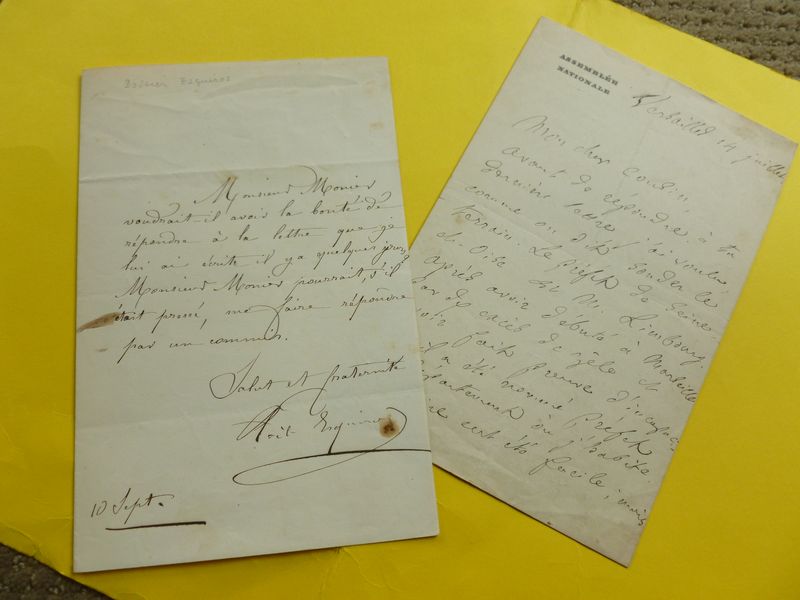 Dossier Esquiros
Monsieur Monier
voudrait il avoir la bonté de
répondre à la lettre que je
lui ai écrite il y a quelques jours
Monsieur Monier pourrait, s'il
était pressé, me faire répondre
par un commis.
Salut et fraternité
Esquiros
10 Sept.
ASSEMBLÉE
NATIONALE
Versailles 14 juillet
Mon cher cousin,
avant de répondre à ta
dernière lettre j'ai voulu,
comme on dit, sonder le
terrain. Le Préfet de Seine
et Oise est M. Limbourg.
après avoir débuté à Marseille
par excès de zèle et
fait preuve d'incapacité
il a été nommé Préfet
département où j'habite.
eut été facile, mais